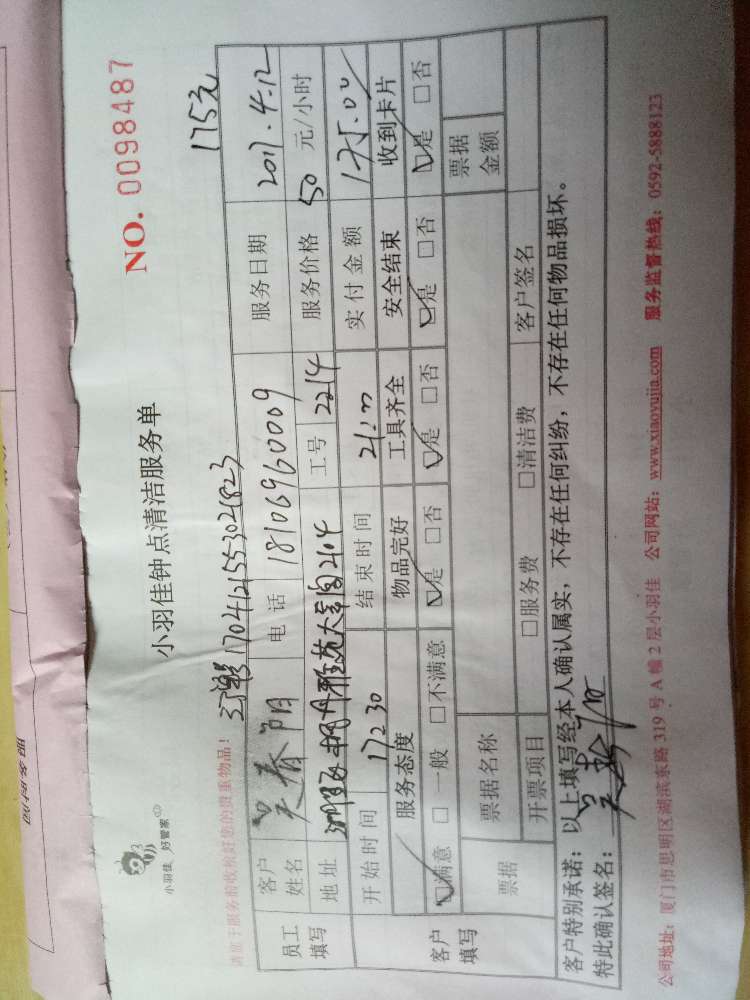 NO. 0098487
小羽佳 好管家
小羽佳钟点清洁服务单
175元
请于服务前收检好您的贵重物品!
170412155302823
员工填写
客户姓名 吴春阳 电话 18106960009 服务日期 2017.4.12
地址 2104 工号 2214 服务价格 50 元/小时
客户填写
开始时间 17:30 结束时间 21:00 实付金额 175.00
服务态度 物品完好 工具齐全 安全结束 收到卡片
☑满意 □一般 □不满意 ☑是 □否 ☑是 □否 ☑是 □否 ☑是 □否
票据 票据名称 票据金额
开票项目 □服务费 □清洁费 客户签名
客户特别承诺:以上填写经本人确认属实,不存在任何纠纷,不存在任何物品损坏。
特此确认签名:
公司地址:厦门市思明区湖滨东路 319 号 A 幢 2 层小羽佳 公司网站:www.xiaoyujia.com 服务监督热线:0592-5888123